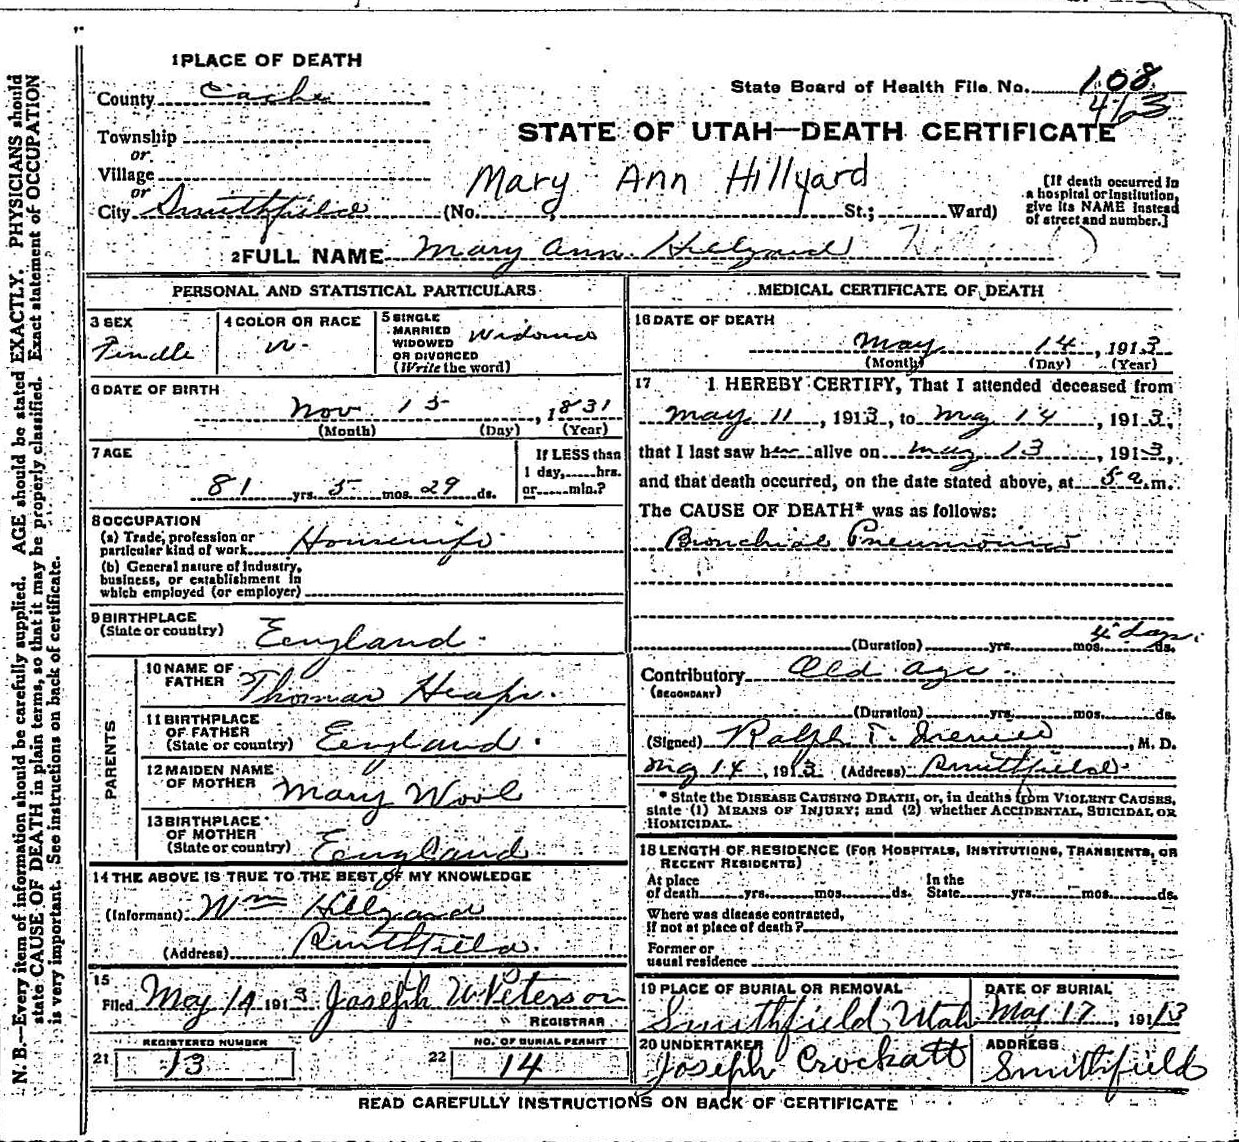 1 PLACE OF DEATH
County Cache
State Board of Health File No. 108
4/23
Township
or
Village
or
City Smithfield
STATE OF UTAH—DEATH CERTIFICATE
Mary Ann Hillyard
(No. St.; Ward)
[If death occurred in
a hospital or institution,
give its NAME instead
of street and number.]
2 FULL NAME Mary Ann Hillyard
PERSONAL AND STATISTICAL PARTICULARS
3 SEX
Female
4 COLOR OR RACE
W.
5 SINGLE
MARRIED
WIDOWED
OR DIVORCED
(Write the word)
Widowed
6 DATE OF BIRTH
Nov 15, 1831
(Month) (Day) (Year)
7 AGE
81 yrs. 5 mos. 29 ds.
If LESS than
1 day, hrs.
or min.?
8 OCCUPATION
(a) Trade, profession or
particular kind of work Housewife
(b) General nature of industry,
business, or establishment in
which employed (or employer)
9 BIRTHPLACE
(State or country) England.
PARENTS
10 NAME OF
FATHER Thomas Heaps.
11 BIRTHPLACE
OF FATHER
(State or country) England.
12 MAIDEN NAME
OF MOTHER Mary Wool
13 BIRTHPLACE
OF MOTHER
(State or country) England
14 THE ABOVE IS TRUE TO THE BEST OF MY KNOWLEDGE
(Informant) Wm Hillyard
(Address) Smithfield.
15
Filed May 14 1913 Joseph W Peterson
REGISTRAR
21 REGISTERED NUMBER
13
22 NO. OF BURIAL PERMIT
14
MEDICAL CERTIFICATE OF DEATH
16 DATE OF DEATH
May 14, 1913
(Month) (Day) (Year)
17 I HEREBY CERTIFY, That I attended deceased from
May 11, 1913, to May 14, 1913,
that I last saw her alive on May 13, 1913,
and that death occurred, on the date stated above, at 5 a.m.
The CAUSE OF DEATH* was as follows:
Bronchial Pneumonia
(Duration) yrs. mos. 4 days. ds.
Contributory Old age.
(SECONDARY)
(Duration) yrs. mos. ds.
(Signed) Ralph T. , M. D.
May 14, 1913 (Address) Smithfield.
* State the DISEASE CAUSING DEATH, or, in deaths from VIOLENT CAUSES,
state (1) MEANS OF INJURY; and (2) whether ACCIDENTAL, SUICIDAL OR
HOMICIDAL.
18 LENGTH OF RESIDENCE (FOR HOSPITALS, INSTITUTIONS, TRANSIENTS, OR
RECENT RESIDENTS)
At place In the
of death yrs. mos. ds. State yrs. mos. ds.
Where was disease contracted,
If not at place of death?
Former or
usual residence
19 PLACE OF BURIAL OR REMOVAL
Smithfield, Utah
DATE OF BURIAL
May 17, 1913
20 UNDERTAKER
Joseph Crockatt
ADDRESS
Smithfield
READ CAREFULLY INSTRUCTIONS ON BACK OF CERTIFICATE
N. B.—Every item of information should be carefully supplied. AGE should be stated EXACTLY. PHYSICIANS should
state CAUSE OF DEATH in plain terms, so that it may be properly classified. Exact statement of OCCUPATION
is very important. See instructions on back of certificate.